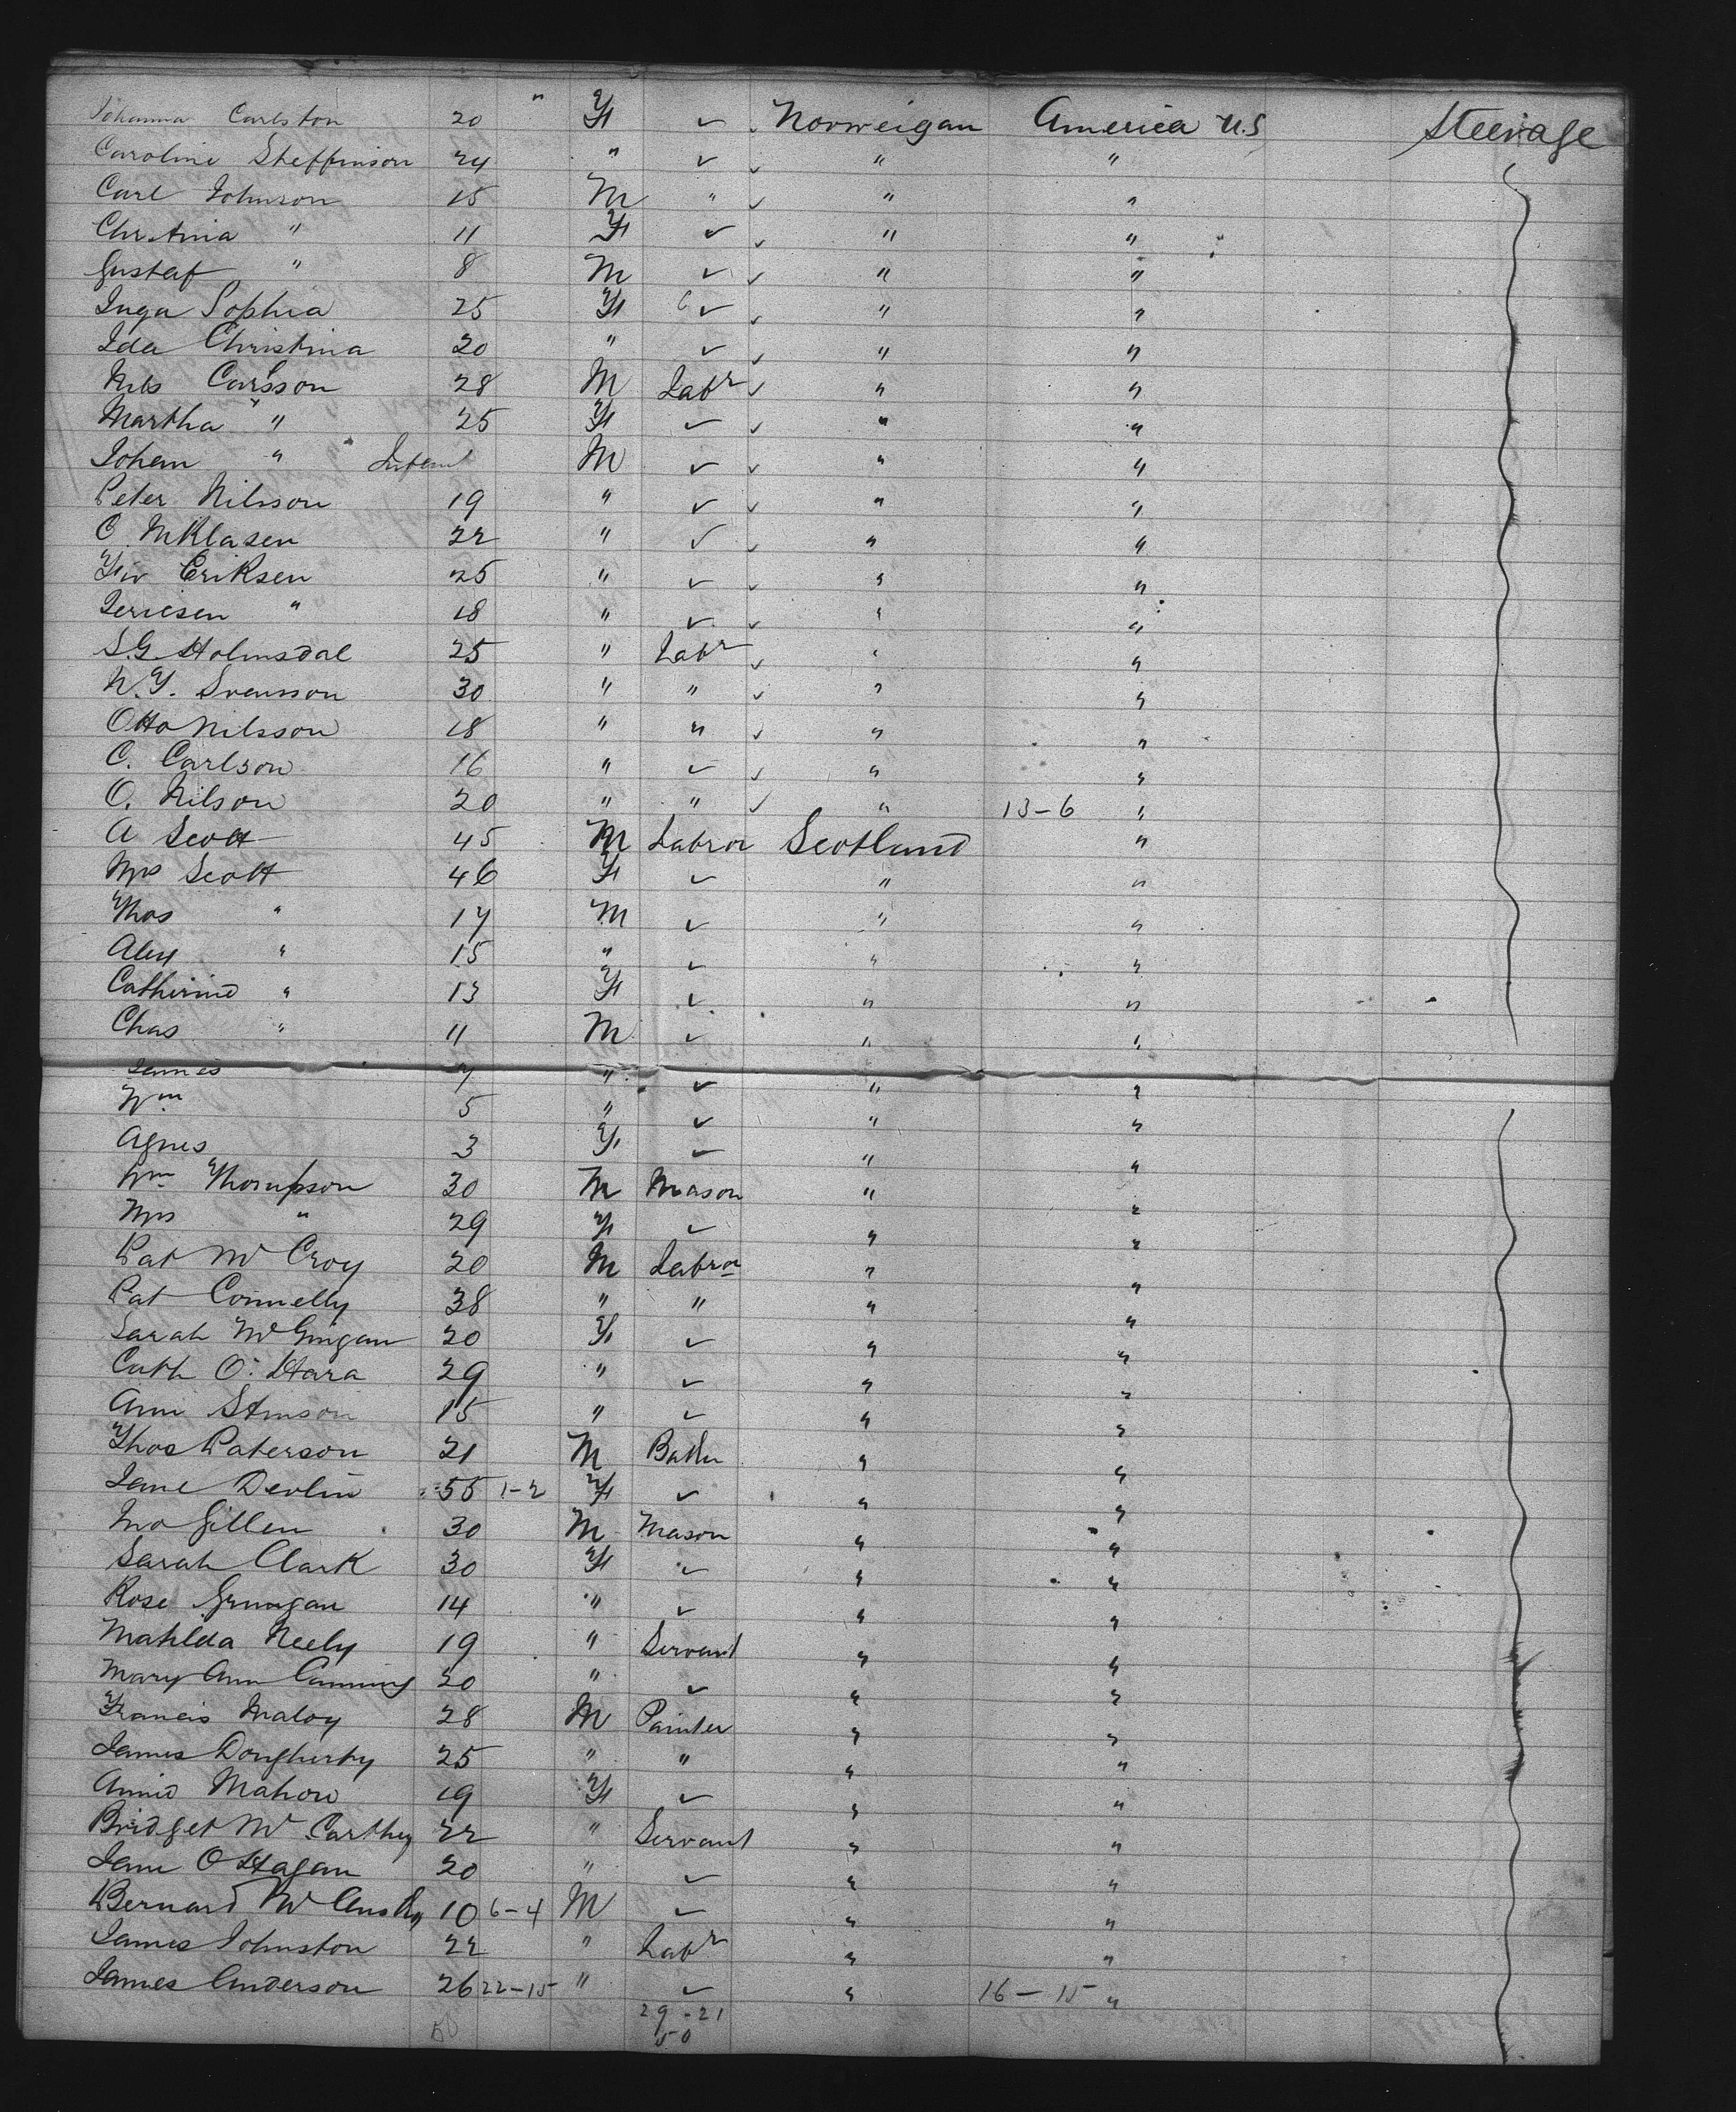 Johanna Carlston 20 " F ✓ ✓ Norweigan America U.S Steerage
Caroline Steffinson 24 " ✓ ✓ " "
Carl Johnson 15 M " ✓ " "
Christina " 11 F ✓ ✓ " "
Gustaf " 8 M ✓ ✓ " "
Inga Sophia 25 F ✓ ✓ " "
Ida Christina 20 " ✓ ✓ " "
Nils Carlsson 28 M Labr ✓ " "
Martha " 25 F ✓ ✓ " "
Johan " Infant M ✓ ✓ " "
Peter Nilsson 19 " ✓ ✓ " "
C. Niklasen 22 " ✓ ✓ " "
Eriksen 25 " ✓ ✓ " "
" 18 " ✓ ✓ " "
S.G. Holmsdal 25 " Labr ✓ " "
N.F. Svensson 30 " " ✓ " "
Otto Nilsson 18 " " ✓ " "
C. Carlson 16 " ✓ ✓ " "
O. Nilson 20 " " ✓ " 13-6 "
A Scott 45 M Labror Scotland "
Mrs Scott 46 F ✓ " "
Thos " 17 M ✓ " "
Alex " 15 " ✓ " "
Catherine " 13 F ✓ " "
Chas " 11 M ✓ " "
James 7 " ✓ " "
Wm 5 " ✓ " "
Agnes 3 F ✓ " "
Wm Thompson 30 M Mason " "
Mrs " 29 F ✓ " "
Pat Mc Croy 20 M Labror " "
Pat Connelly 38 " " " "
Sarah Mc Guigan 20 F ✓ " "
Cath O'Hara 29 " ✓ " "
Ann Stinson 15 " ✓ " "
Thos Paterson 21 M " "
Jane Devlin 55 1-2 F ✓ " "
Jno Gillen 30 M Mason " "
Sarah Clark 30 F ✓ " "
Rose 14 " ✓ " "
Matilda Neely 19 " Servant " "
Mary Ann Cumming 20 " ✓ " "
Francis Maloy 28 M Painter " "
James Dougherty 25 " " " "
Annie Mahon 19 F ✓ " "
Bridget Mc Carthey 22 " Servant " "
Jane O Hagan 20 " ✓ " "
Bernard Mc 10 6-4 M ✓ " "
James Johnston 22 " Labr " "
James Anderson 26 22-15 " ✓ " 16-15 "
50 29-21
50